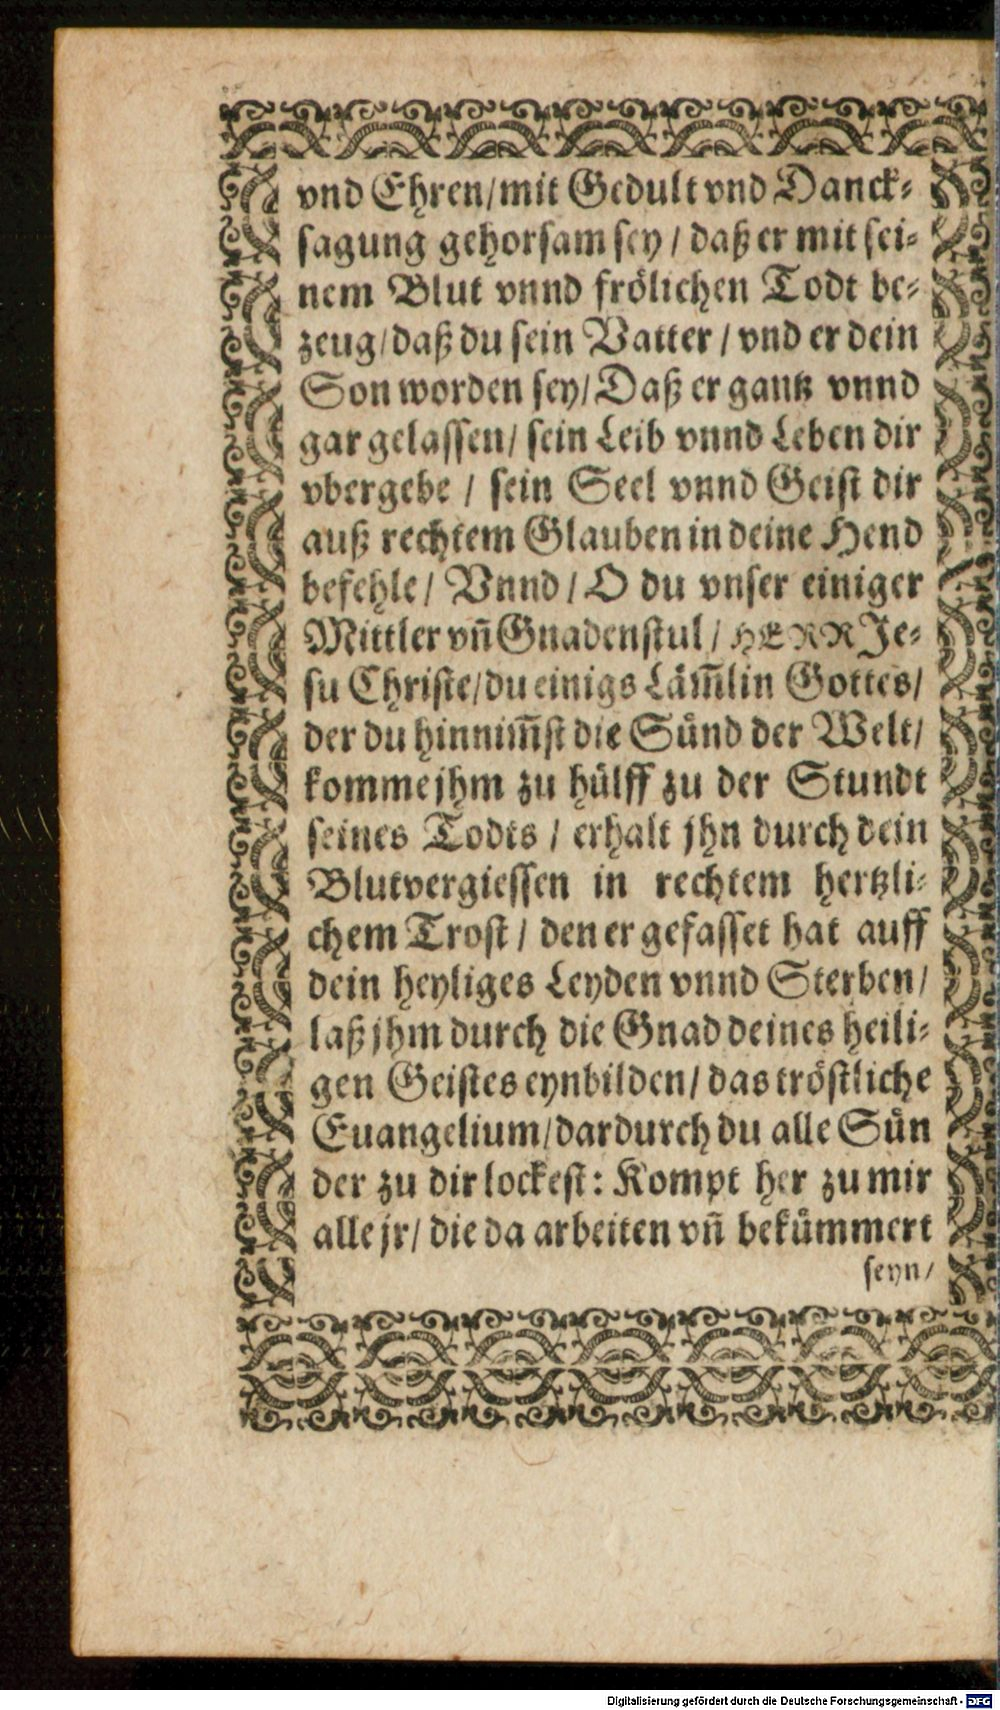 vnd Ehren/mit Gedult vnd Danck-
sagung gehorsam sey / daß er mit sei-
nem Blut vnnd frölichen Todt be-
zeug/daß du sein Vatter / vnd er dein
Son worden sey/Daß er gantz vnnd
gar gelassen/ sein Leib vnnd Leben dir
vbergebe / sein Seel vnnd Geist dir
auß rechtem Glauben in deine Hend
befehle/ Vnnd / O du vnser einiger
Mittler vñ Gnadenstul / HERR Je-
su Christe/du einigs Läm̃lin Gottes/
der du hinnim̃st die Sünd der Welt/
komme jhm zu hülff zu der Stundt
seines Todts / erhalt jhn durch dein
Blutvergiessen in rechtem hertzli-
chem Trost / den er gefasset hat auff
dein heyliges Leyden vnnd Sterben/
laß jhm durch die Gnad deines heili-
gen Geistes eynbilden/ das tröstliche
Euangelium/dardurch du alle Sün
der zu dir lockest: Kompt her zu mir
alle jr/ die da arbeiten vñ bekümmert
seyn/
Digitalisierung gefördert durch die Deutsche Forschungsgemeinschaft - DFG